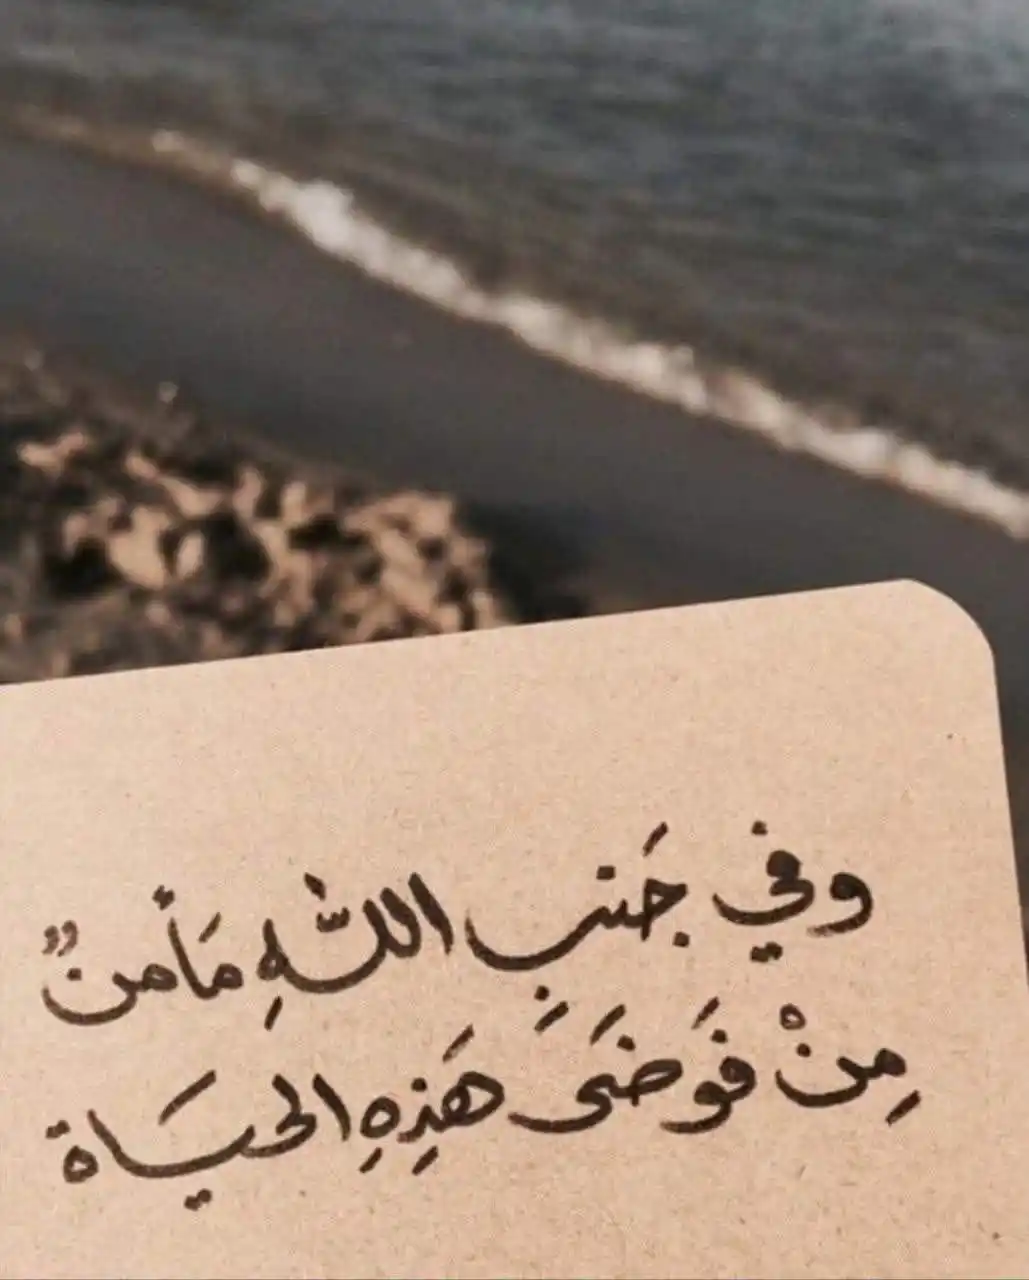 وفي جَنبِ اللّٰهِ مَأمنٌ
مِنْ فَوضَى هَذِهِ الحيَاة